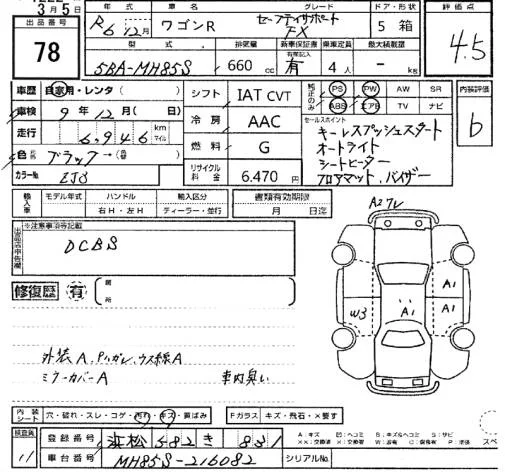 3月5日
出品番号 78
年式 R6 12月 車名 ワゴンR グレード セーフティサポート FX ドア・形状 5 箱
評価点 4.5
型式 5BA-MH85S 排気量 660 cc 新車保証書 有 乗車定員 4 人 最大積載量 - kg
車歴 自家用・レンタ
車検 9年12月( 日)
走行 6,946 km マイル
色 ブラック→
カラーNo ZJ3
シフト IAT CVT
冷房 AAC
燃料 G
リサイクル料金 6.470 円
純正のみ PS PW AW SR
ABS エアB TV ナビ
内装評価 b
セールスポイント
キーレスプッシュスタート
オートライト
シートヒーター
フロアマット、バイザー
輸入車 モデル年式 ハンドル 右H・左H 輸入区分 ディーラー・並行
書類有効期限 月 日迄
※注意事項等記載
DCBS
修復歴 有 箇所
A2 アレ
A1
W3
A1
A1
外装A、Pハガレ、ウス線A
ミラーカバーA 車内臭い
内装シート 穴・破れ・スレ・コゲ・汚れ・キズ・黄ばみ
Fガラス キズ・飛石・×要す
検査員 11
登録番号 浜松 582 き 831
車台番号 MH85S-216082
シリアルNo.
A:キズ